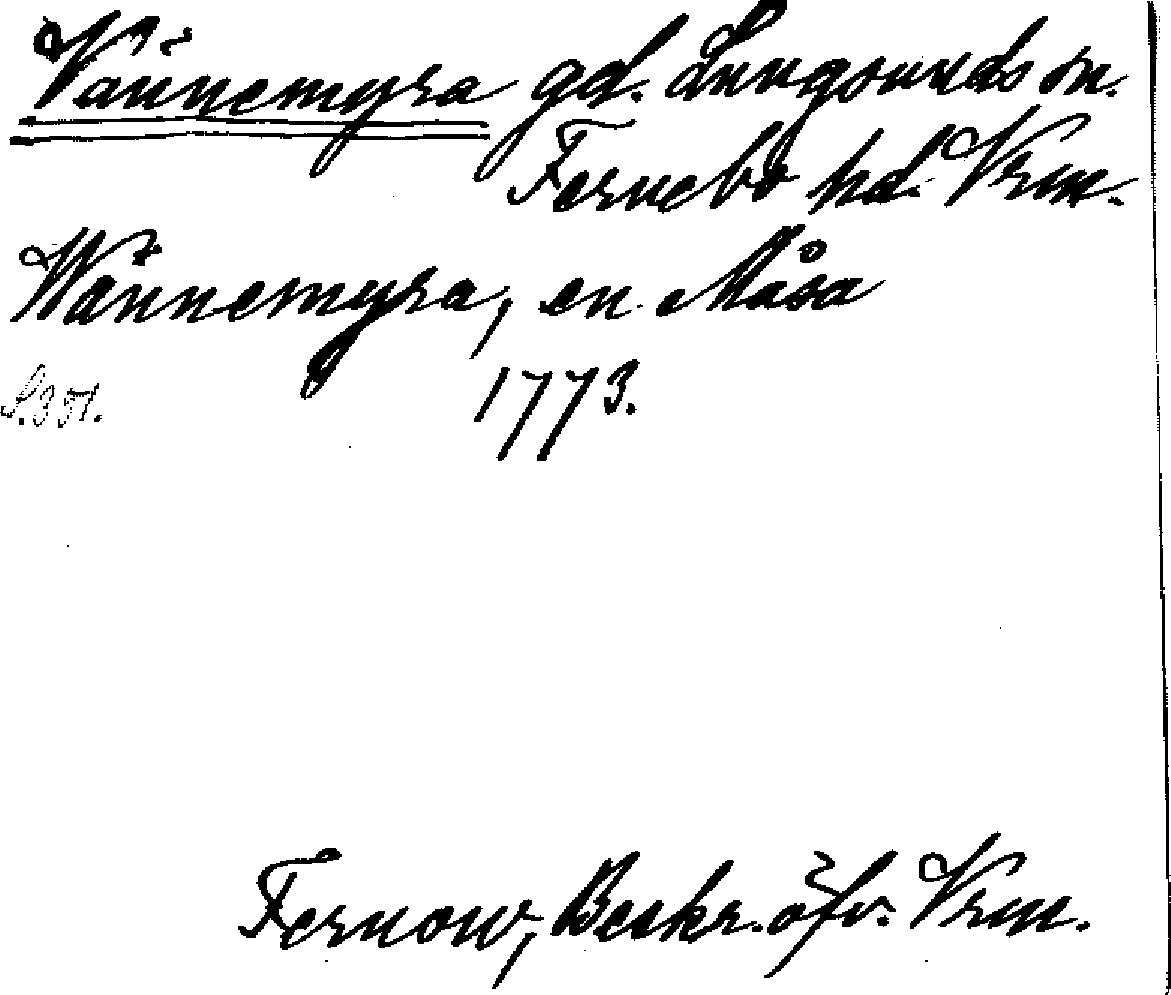 Vännemyra gd. Lungsunds sn.
Fernebo hd. Vrm.
Wännemyra, en Måsa
S. 351. 1773.
Fernow, Beskr. öfv. Vrm.